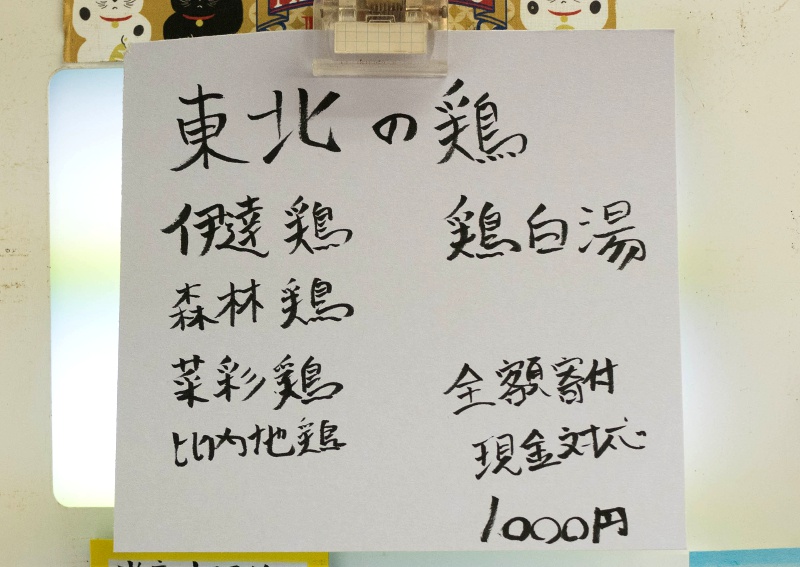 東北の鶏
伊達鶏
森林鶏
菜彩鶏
比内地鶏
鶏白湯
全額寄付
現金対応
1000円